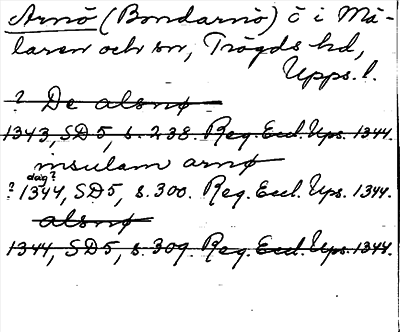 Arnö (Bondarnö) ö i Mä-
laren och sn, Trögds hd,
Upps. l.
? De alsnø
1343, SD 5, s. 238. Reg. Eccl. Ups. 1344.
insulam arnø
dag?
? 1344, SD 5, s. 300. Reg. Eccl. Ups. 1344.
alsnø
1344, SD 5, s. 309. Reg. Eccl. Ups. 1344.